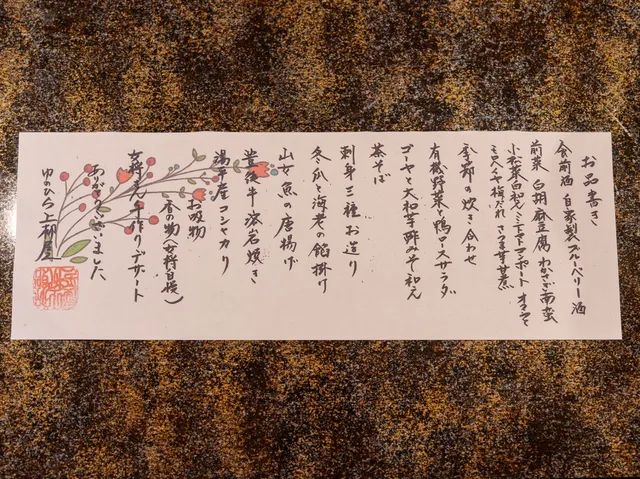 お品書き
食前酒 自家製ブルーベリー酒
前菜 白胡麻豆腐 わかさぎ南蛮
小松菜白和え ミニトマトコンポート オクラと
梅だれ さつま芋甘煮
季節の炊き合わせ
有機野菜と鴨ロースサラダ
ゴーヤと大和芋酢みそ和え
茶そば
刺身三種お造り
冬瓜と海老の餡掛け
山女魚の唐揚げ
豊後牛溶岩焼き
湯平産コシヒカリ
お吸物
香の物(女将自慢)
女将の手作りデザート
ありがとうございました
ゆのひら上柳屋